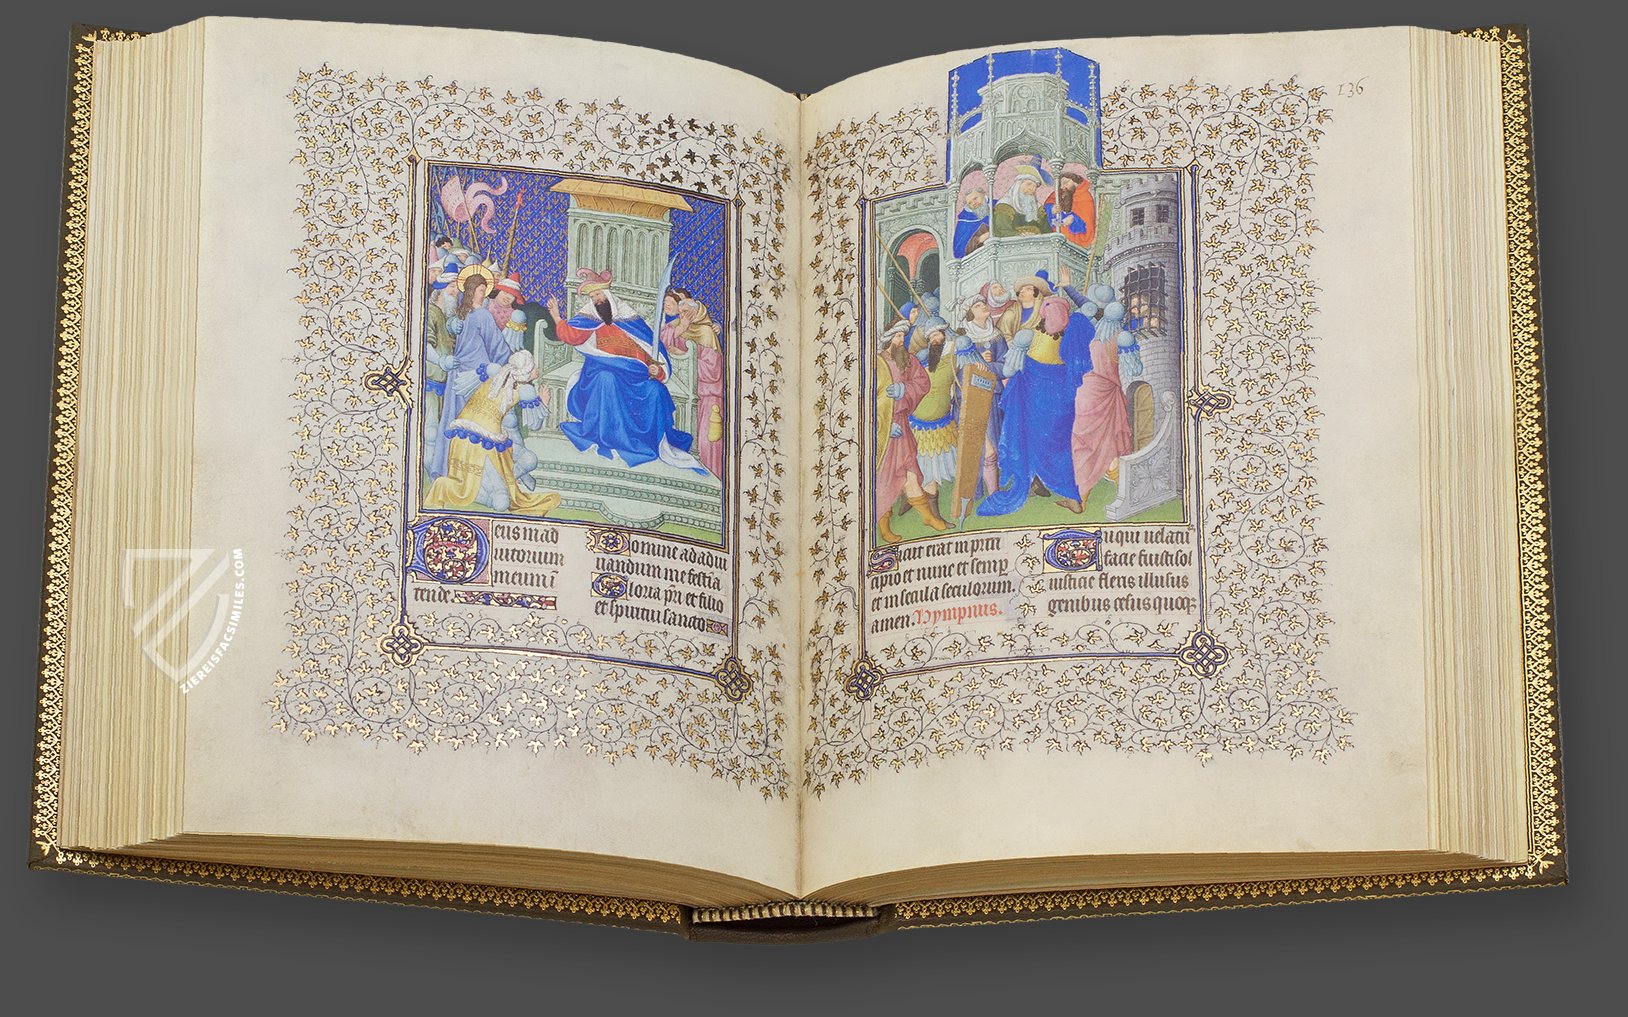 Deus in ad
iutorium
meum i
tende.
Domine ad adiu
uandum me festia
Gloria pri et filio
et spiritui sancto
136
Sicut erat in prin
cipio et nunc et semp
et in secula seculorum.
amen. Hympnus.
Qui uelatus
facie fuisti sol
iusticie flexis illusus
genibus cesus quoq
ZIEREISFACSIMILES.COM